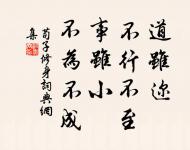 道雖迩
不行不至
事雖小
不為不成
荀子修身詞典網
集